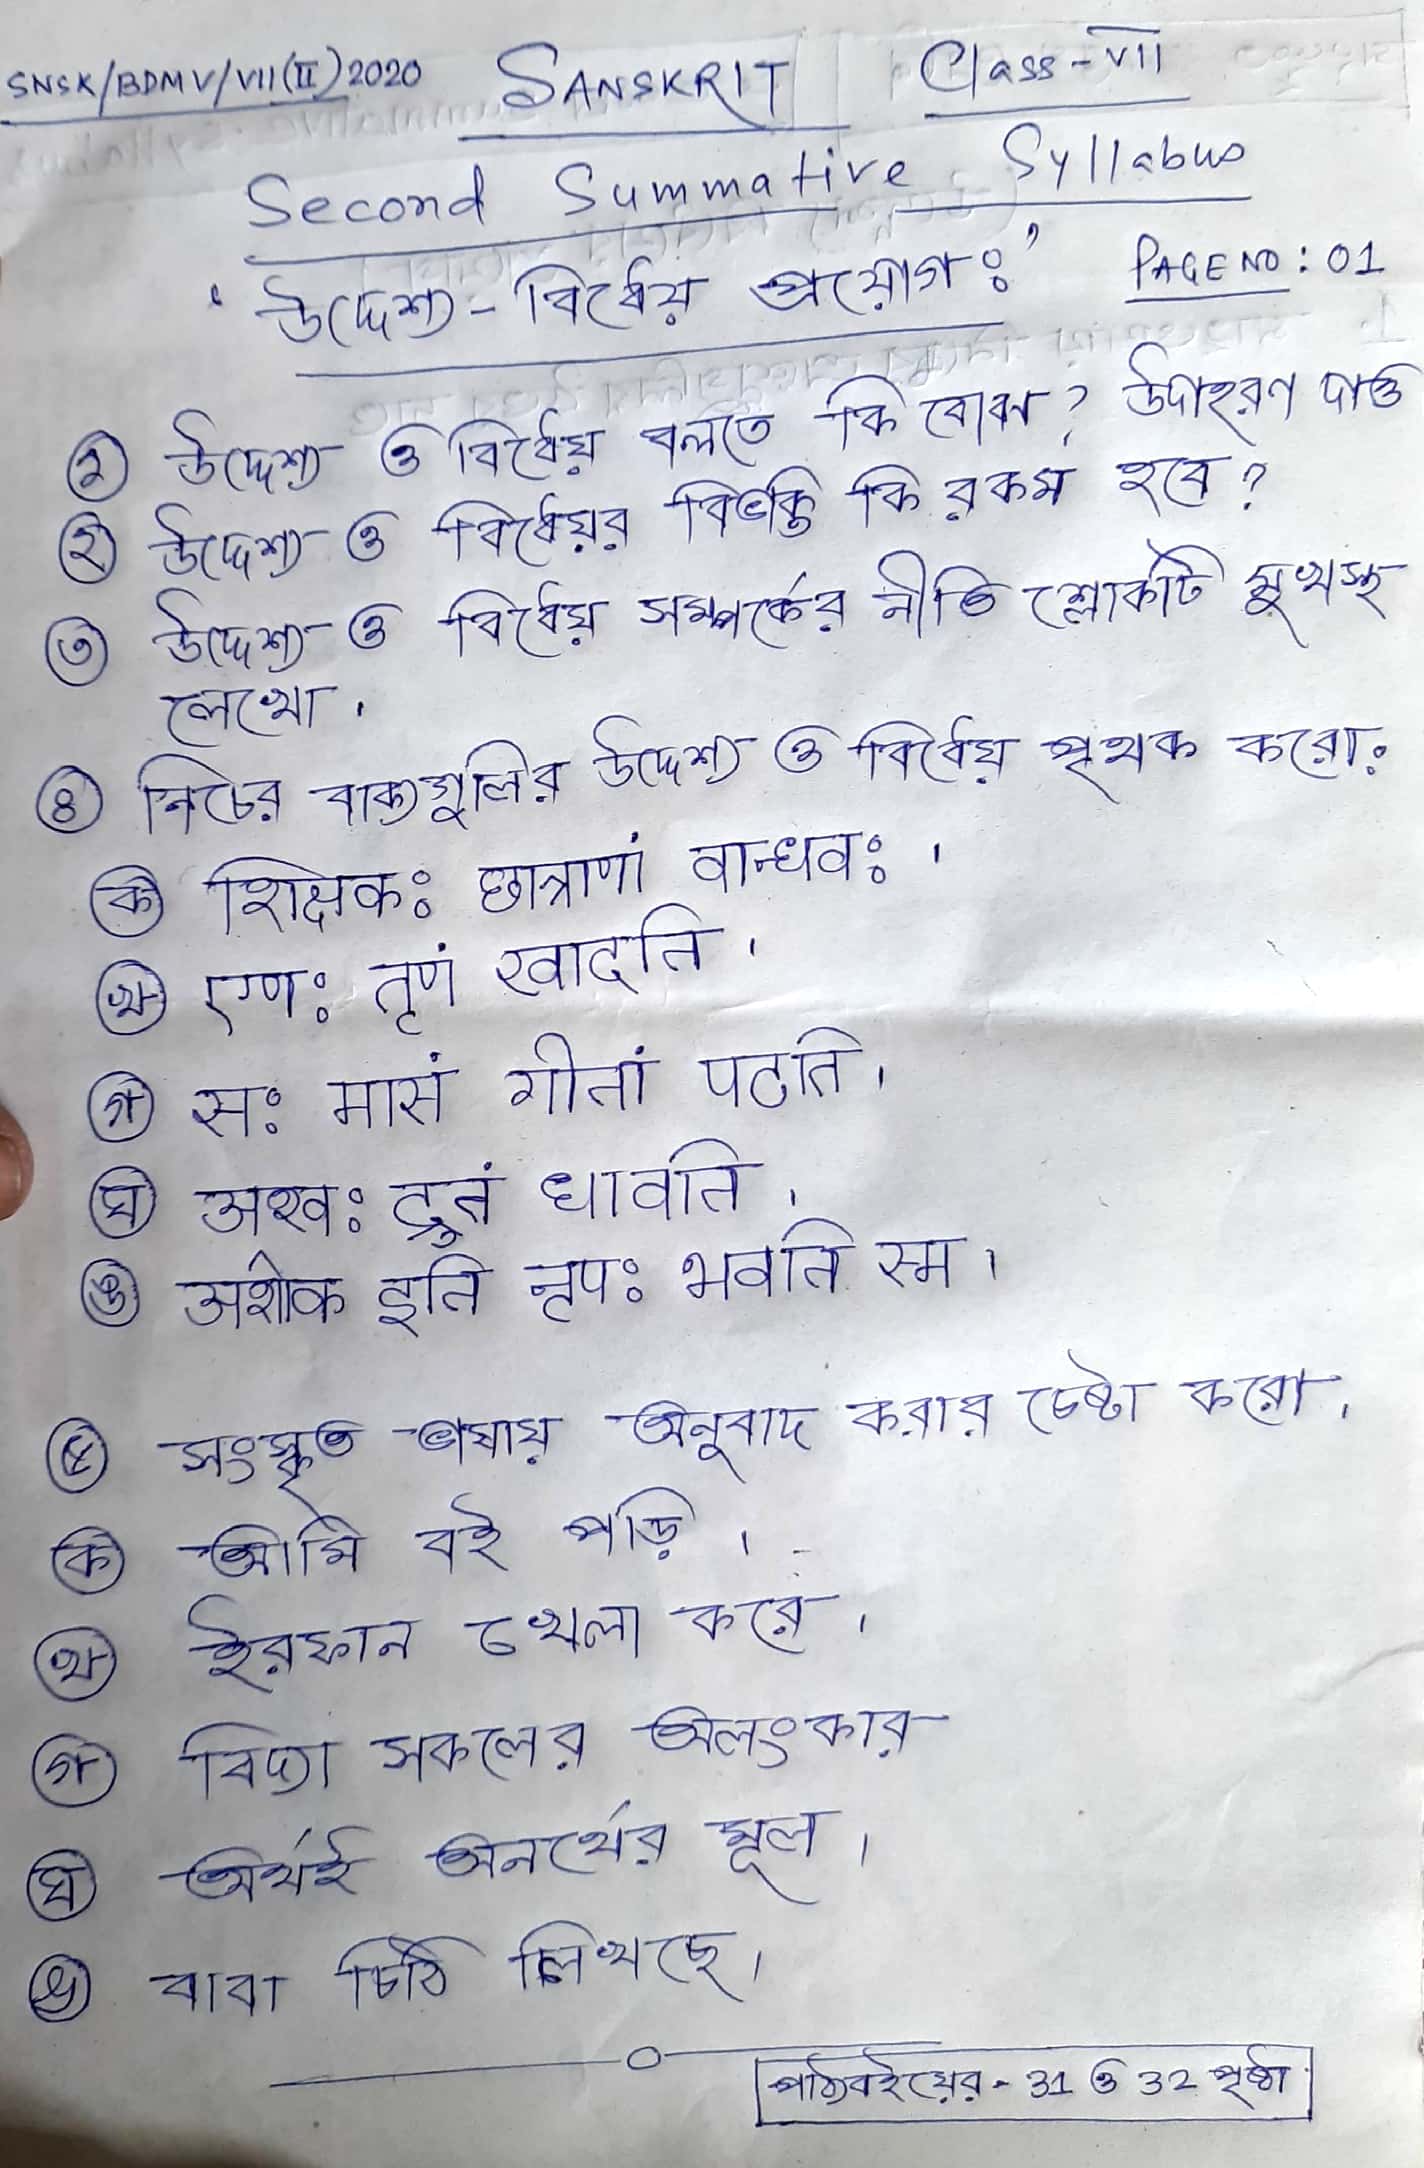 SNSK/BDMV/VII(II)2020 SANSKRIT Class-VII
Second Summative Syllabus
'উদ্দেশ্য-বিধেয় প্রয়োগঃ' PAGE NO: 01
১ উদ্দেশ্য ও বিধেয় বলতে কি বোঝ? উদাহরণ দাও
২ উদ্দেশ্য ও বিধেয়র বিভক্তি কি রকম হবে?
৩ উদ্দেশ্য ও বিধেয় সম্পর্কের নীতি শ্লোকটি মুখস্থ
লেখো।
৪ নিচের বাক্যগুলির উদ্দেশ্য ও বিধেয় পৃথক করো:
ক शिक्षकः छात्राणां वान्धवः ।
খ एणः तृणं खादति ।
গ सः मासं गीतां पठति ।
ঘ अश्वः द्रुतं धावति ।
ঙ अशोक इति नृपः भवति स्म ।
৫ সংস্কৃত ভাষায় অনুবাদ করার চেষ্টা করো।
ক আমি বই পড়ি ।
খ ইরফান খেলা করে ।
গ বিদ্যা সকলের অলংকার
ঘ অর্থই অনর্থের মূল ।
ঙ বাবা চিঠি লিখছে।
পাঠ্যবইয়ের - 31 ও 32 পৃষ্ঠা